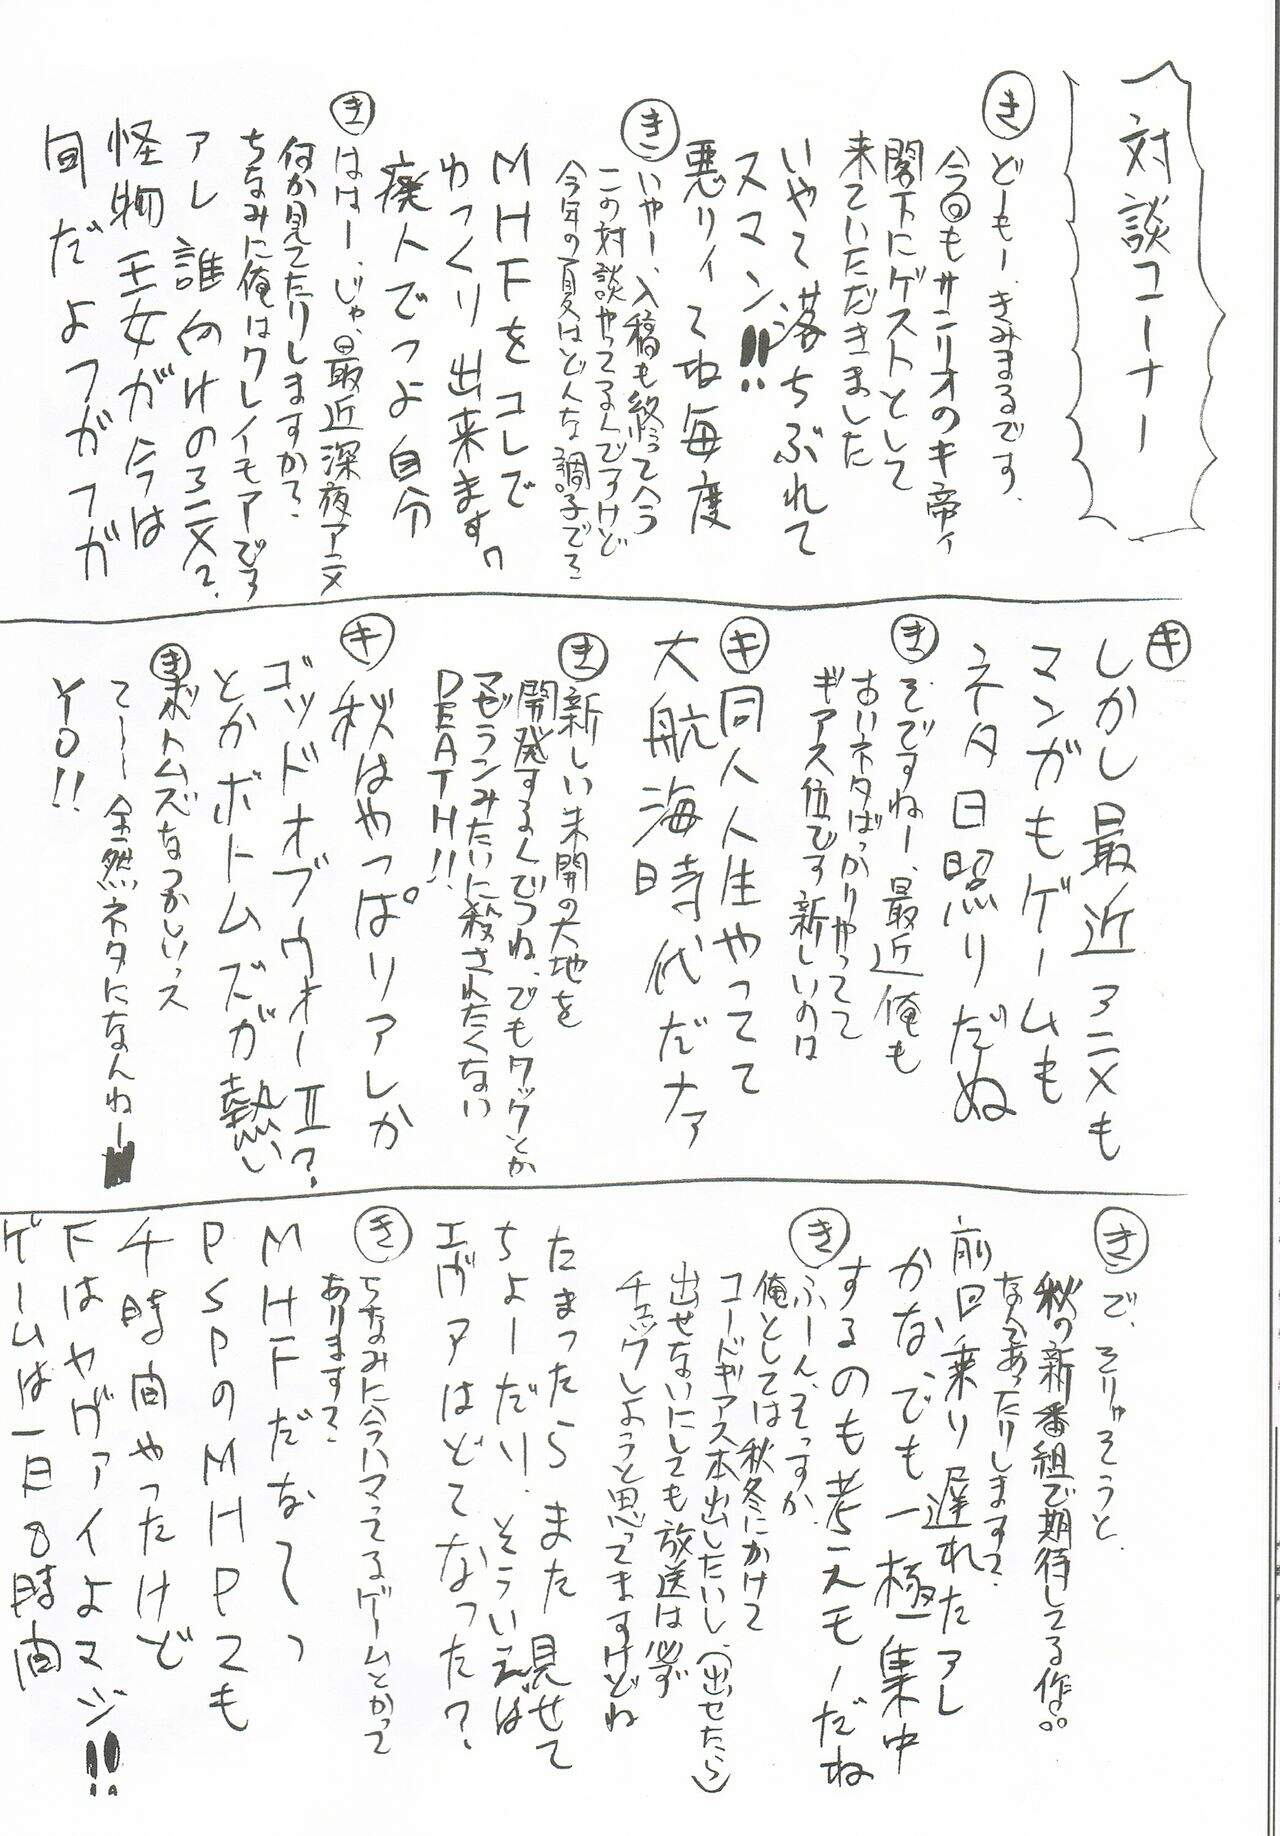 対談コーナー
き どーもー、きみまるです、
今回もサンリオのキ帝ィ
閣下にゲストとして
来ていただきました
いやて落ちぶれて
スマン!!
悪リィてね毎度
き いやー、入稿も終って今
この対談やってるんですけど
今年の夏はどんな調子でろ
MHFをコレで
ゆっくり出来ます。
廃人でつよ自分
き ははー、じゃ、最近深夜アニメ
何か見てたりしますか?
ちなみに俺はクレイモアです
アレ誰向けのアニメ?
怪物王女が今は
旬だよフガフガ
キ しかし最近アニメも
マンガもゲームも
ネタ日照りだぬ
き そですねー、最近俺も
古いネタばっかりやってて
ギアス位です新しいのは
キ 同人人生やってて
大航海時代だナァ
き 新しい未開の大地を
開発するんでつね、でもクックとか
マゼランみたいに殺されたくない
DEATH!!
キ 秋はやっぱりアレか
ゴッドオブウォーII?
とかボトムズが熱い
き ボトムズなつかしいっス
てーー全然ネタになんねー
YO!!
き で、そりゃそうと、
秋の新番組で期待してる作品
なんてあったりします?
前回乗り遅れたアレ
かな、でも一極集中
するのも考えモノだね
き ふーん、そっすか、
俺としては秋冬にかけて
コードギアス本出したいし、(出せたら)
出せないにしても放送は必ず
チェックしようと思ってますけどね
たまったらまた見せて
ちょーだい、そういえば
エヴァはどてなった?
き ちなみに今ハマってるゲームとかって
あります?
MHFだなてっ
PSPのMHPスも
千時間やったけど
Fはヤヴァイよマジ!!
ゲームは一日8時間